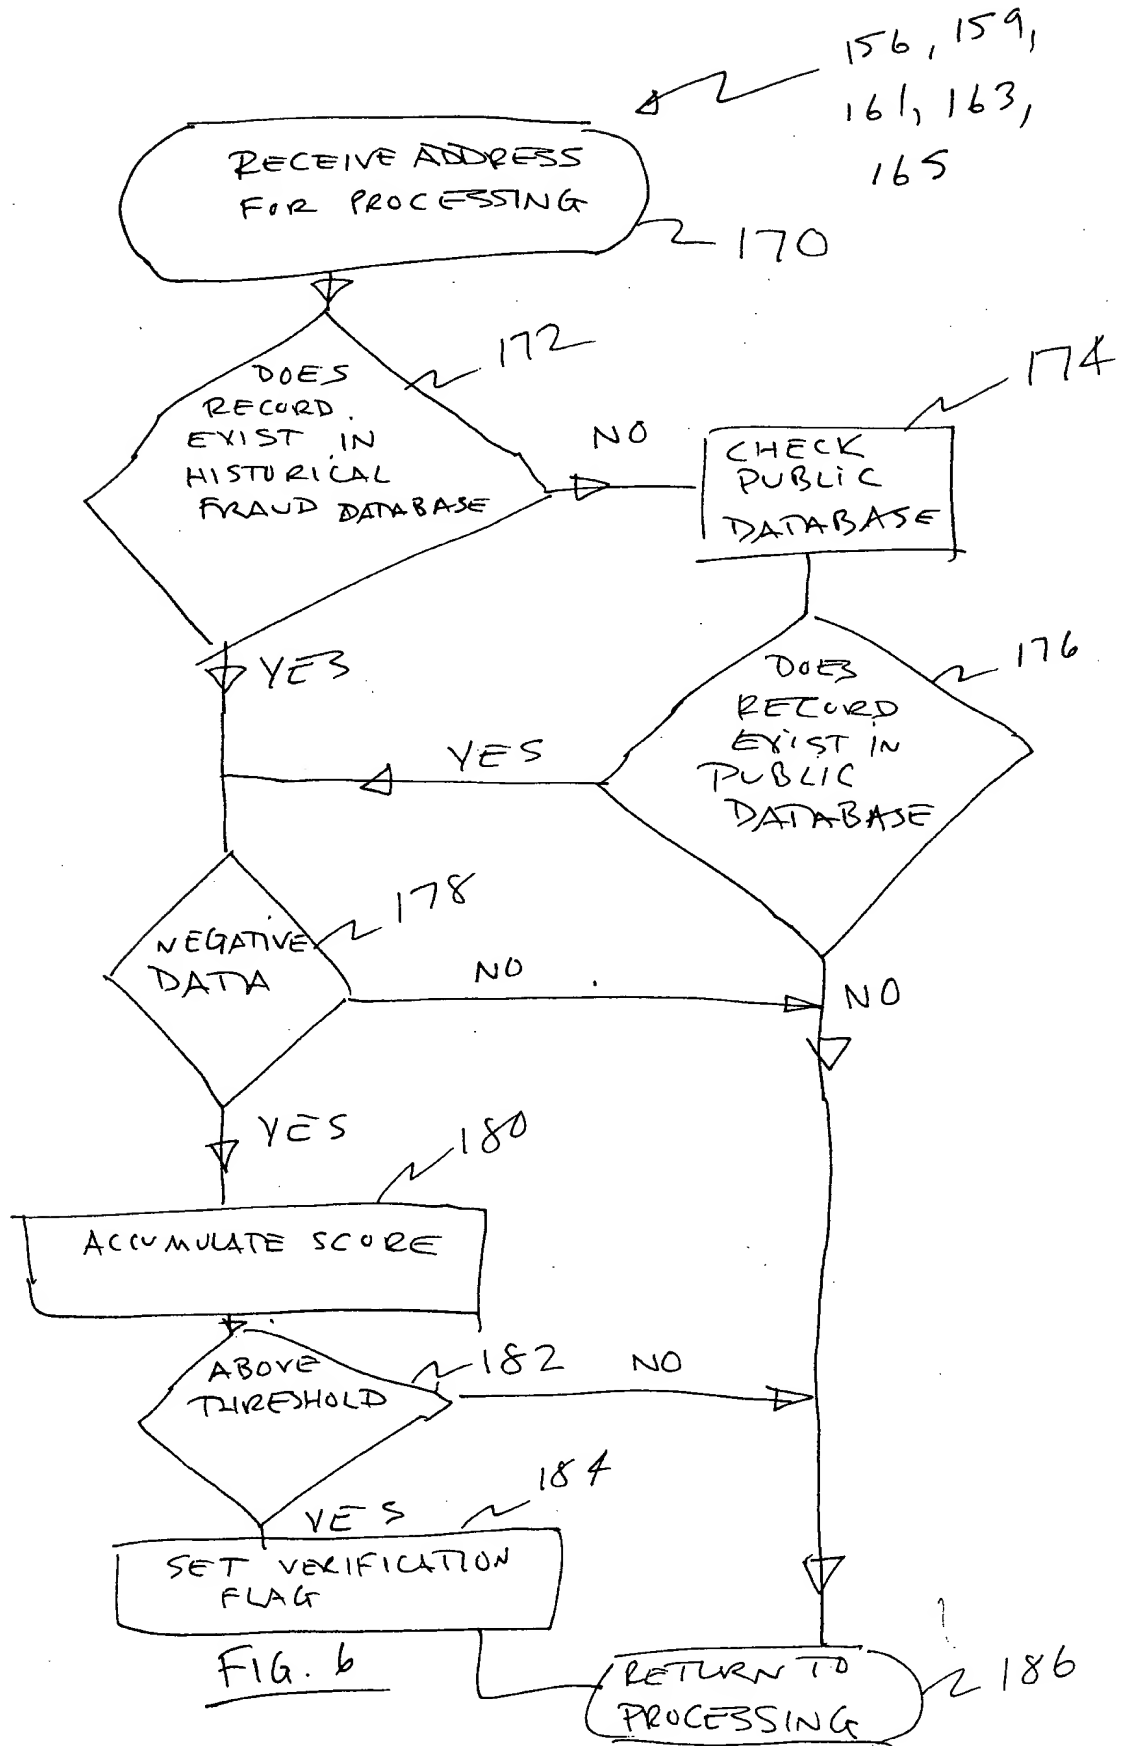 156, 159,
161, 163,
165
RECEIVE ADDRESS
FOR PROCESSING
170
172
DOES
RECORD
EXIST IN
HISTORICAL
FRAUD DATABASE
NO
174
CHECK
PUBLIC
DATABASE
YES
176
DOES
RECORD
EXIST IN
PUBLIC
DATABASE
YES
178
NEGATIVE
DATA
NO
NO
YES
180
ACCUMULATE SCORE
182
ABOVE
THRESHOLD
NO
184
YES
SET VERIFICATION
FLAG
FIG. 6
RETURN TO
PROCESSING
186